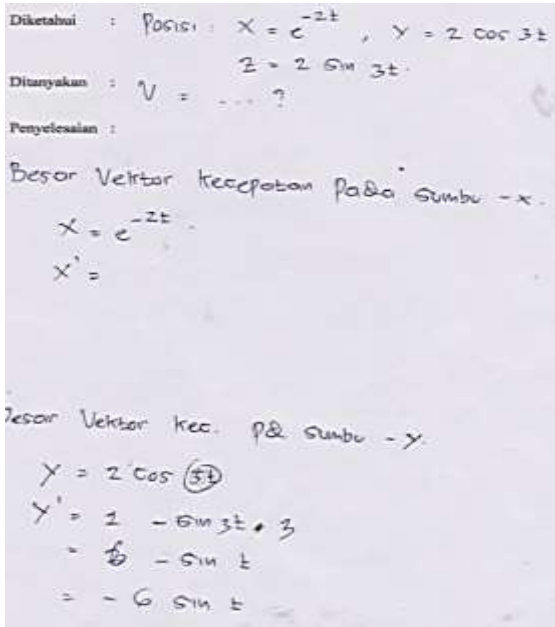 Diketahui : Posisi : x = e^-2t , y = 2 cos 3t
z = 2 sin 3t.
Ditanyakan : V = .... ?
Penyelesaian :
Besar Vektor Kecepatan Pada sumbu -x.
x = e^-2t.
x' =
Besar Vektor kec. pd sumbu -y.
y = 2 cos 3t
y' = 2 - sin 3t . 3
= 6 - sin t
= - 6 sin t